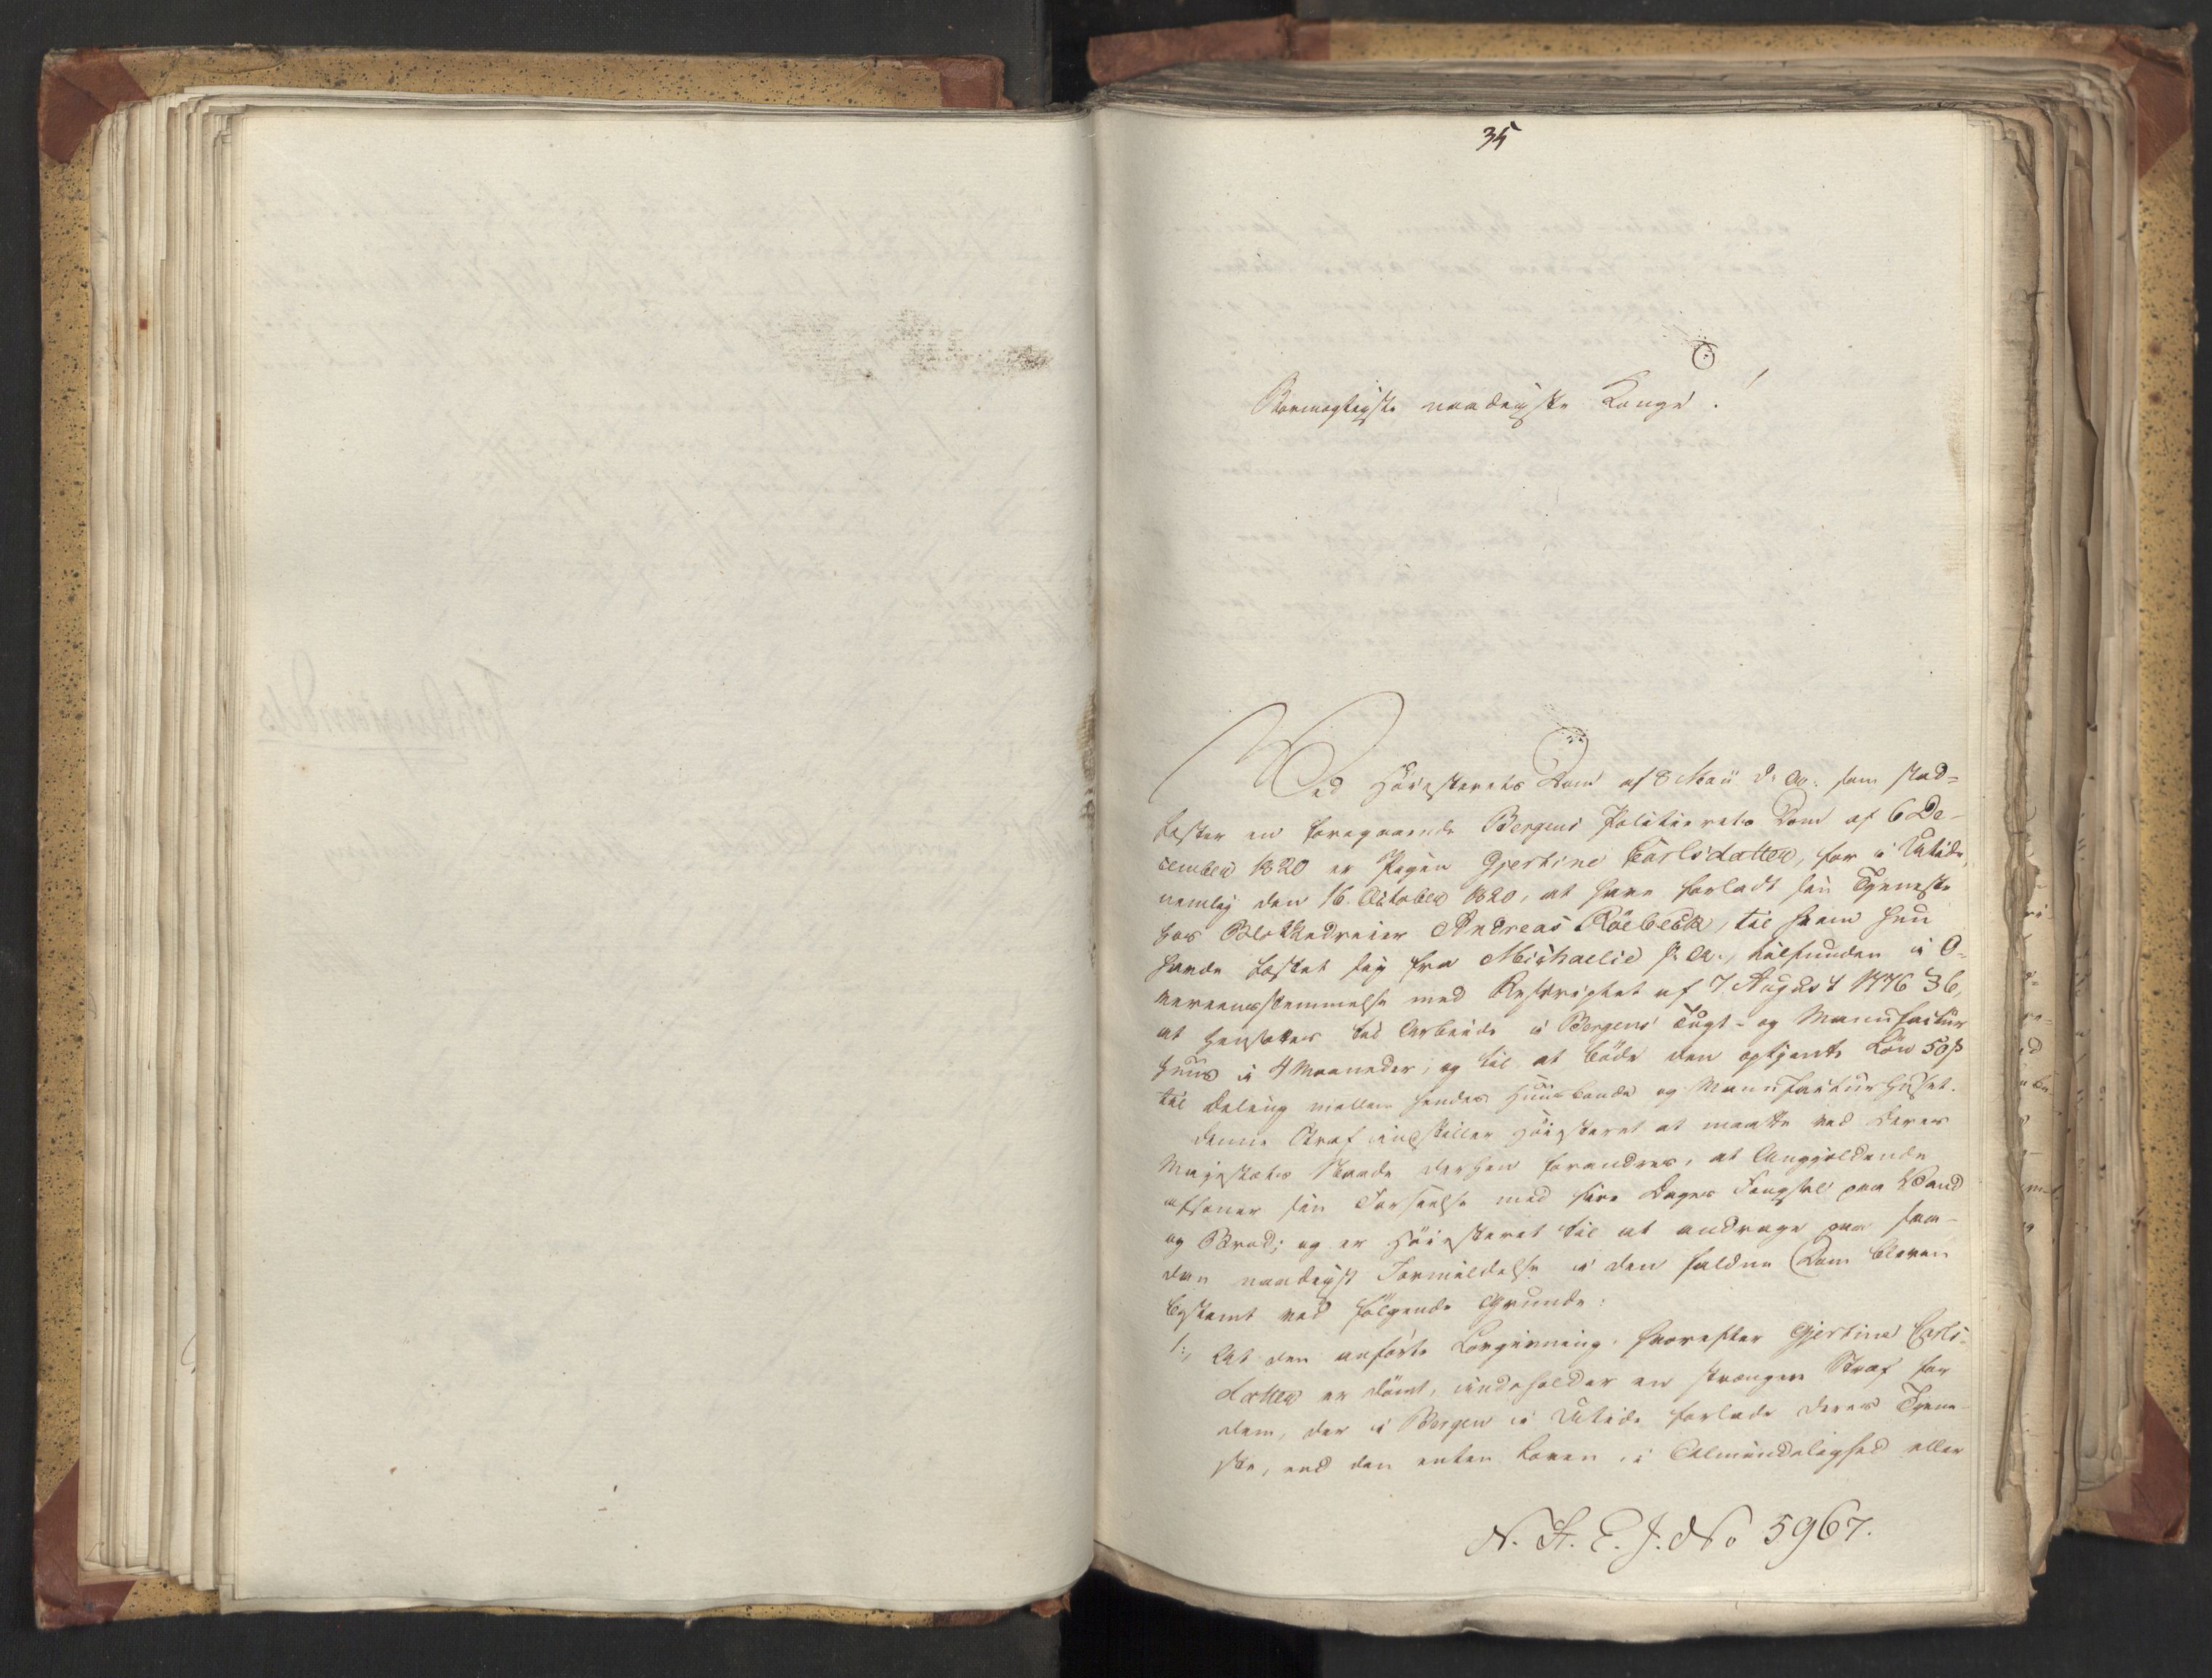 35
Stormægtigste naadigste Konge!
Ved Høiesterets Dom af 8 Maii d: A: som stad-
fæster en foregaaende Bergens Politierets Dom af 6 De-
cember 1820 er Pigen Gjertine Carlsdatter, for i Utide,
nemlig den 16 October 1820, at have forladt sin Tjeneste
hos Blokkedreier Andreas Röebeck, til hvem hun
havde fæstet sig fra Michaelis s. A., tilfunden i O-
vereensstemmelse med Rescriptet af 7 August 1776 § 6,
at hensættes til Arbeide i Bergens Tugt- og Manufactur
huus i 4 Maaneder, og til at bøde den optjente Løn 50 ß
til Deling mellem hendes Huusbonde og Manufacturhuset.
Denne Straf indstiller Høiesteret at maatte ved Deres
Majestæts Naade derhen forandres, at Angjeldende
afsoner sin Forseelse med fire Dages Fængsel paa Vand
og Brød; og er Høiesteret til at andrage paa saa-
dan naadigst Formildelse i den faldne Dom bleven
bestemt ved følgende Grunde:
1:, At den anførte Lovgivning, hvorefter Gjertine Carls-
datter er dømt, indeholder en strengere Straf for
dem, der i Bergen i Utide forlade deres Tjene-
ste, end den enten Loven i Almindelighed eller
N. St. E. J. No 5967.